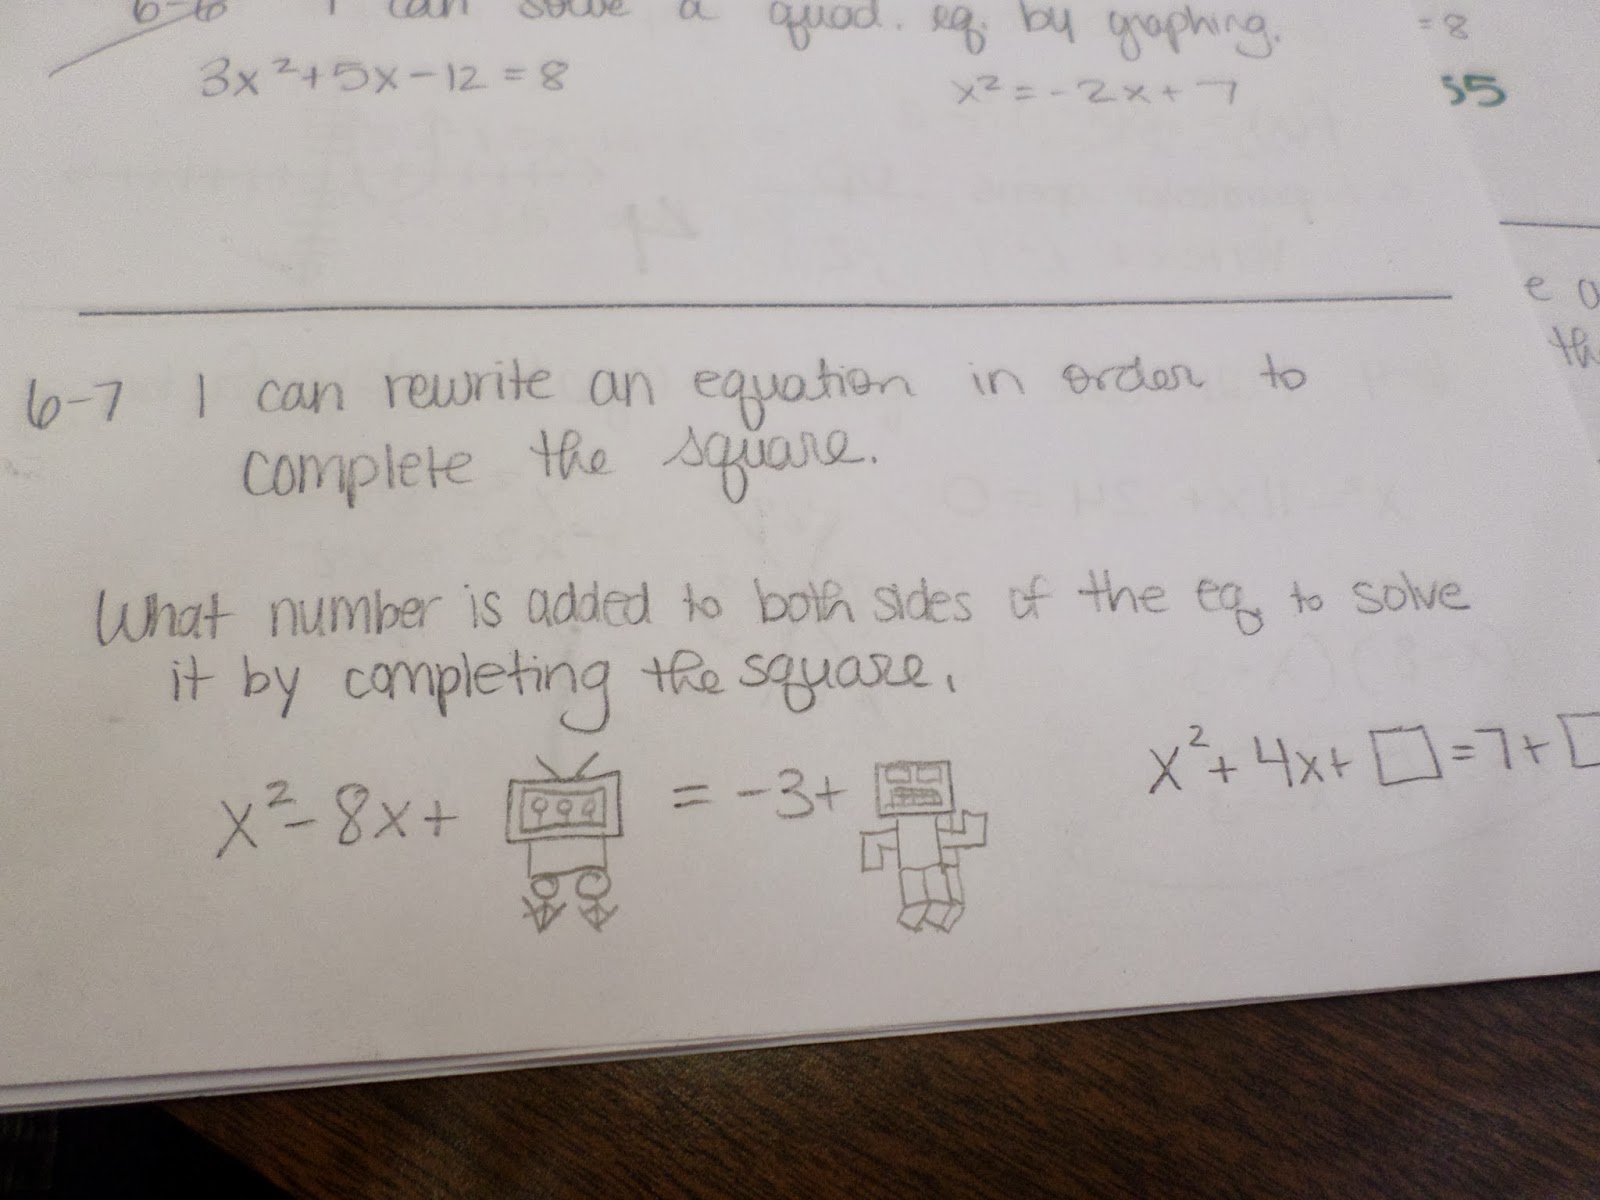 6-6 I can solve a quad. eq. by graphing.
3x²+5x-12=8
x²=-2x+7
=8
55
6-7 I can rewrite an equation in order to
complete the square.
What number is added to both sides of the eq to solve
it by completing the square.
x²-8x+ = -3+
x²+4x+□=7+□
e
th